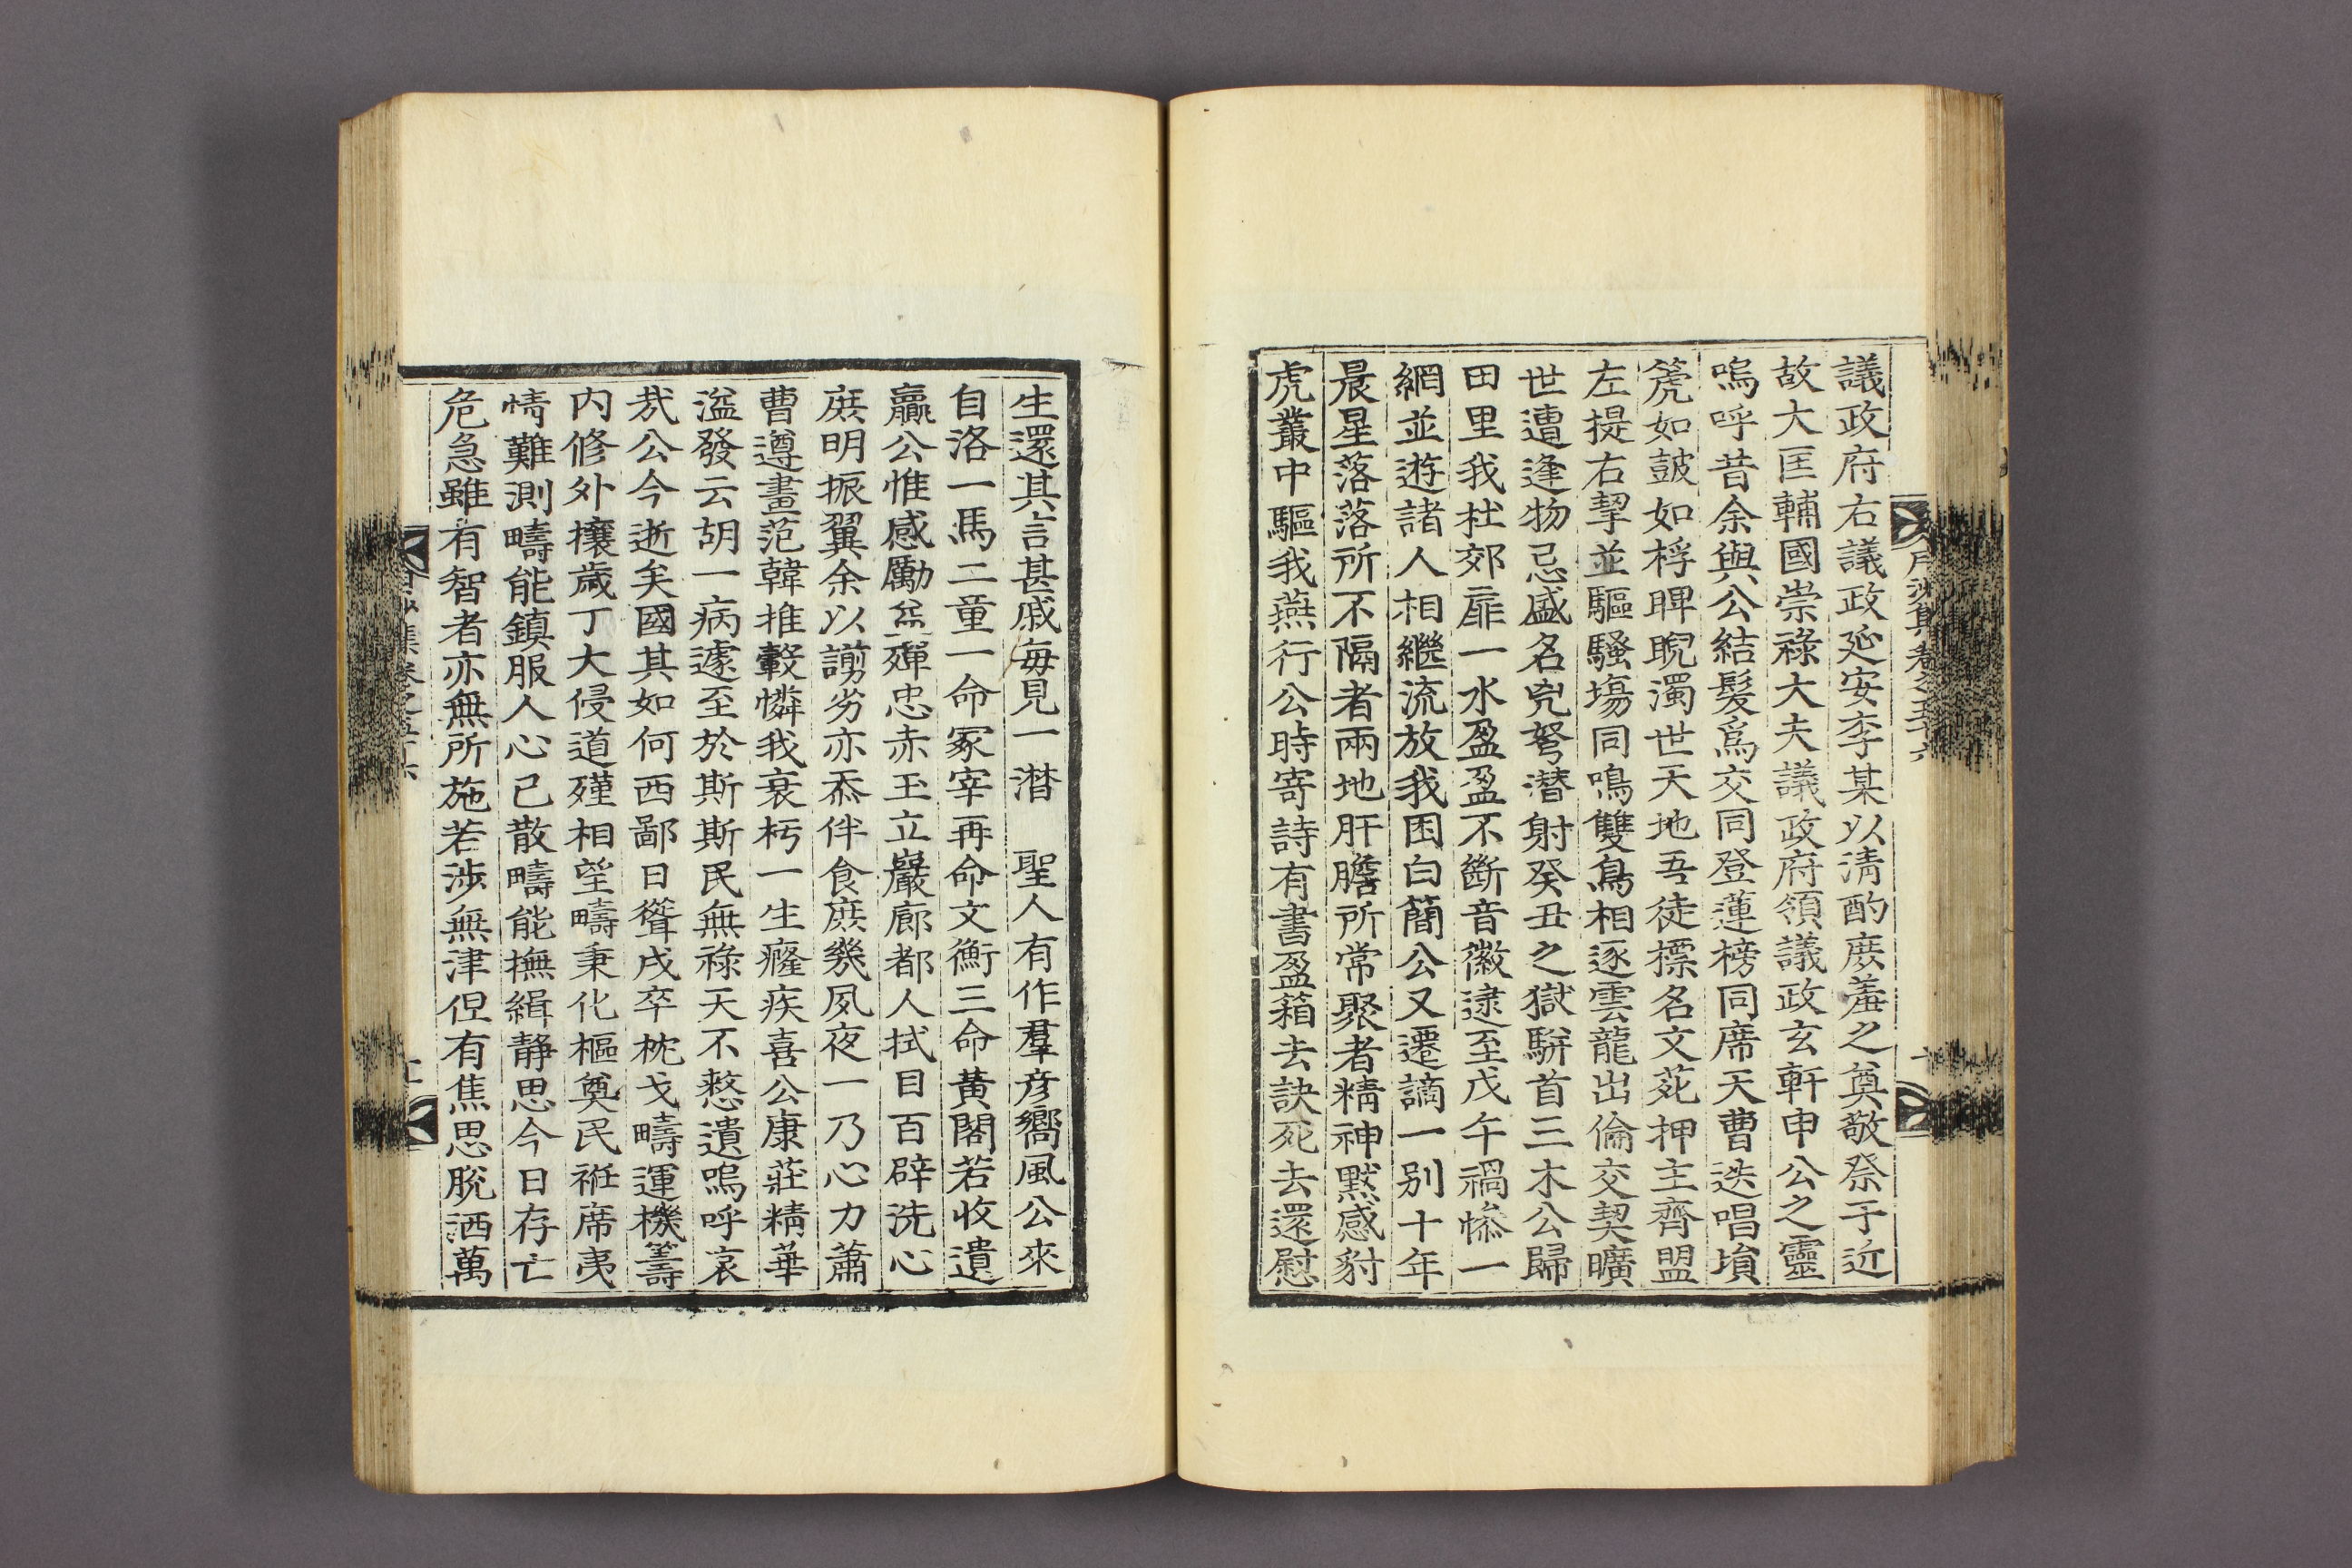 議政府右議政延安李某以淸酌庶羞之奠敬祭于近
故大匡輔國崇祿大夫議政府領議政玄軒申公之靈
嗚呼昔余與公結髮爲交同登蓮榜同席天曹迭唱塤
篪如鼓如桴睥睨濁世天地吾徒標名文苑押主齊盟
左提右挈並驅騷場同鳴雙鳥相逐雲龍出倫交契曠
世遭逢物忌盛名兇弩潛射癸丑之獄騈首三木公歸
田里我杜郊扉一水盈盈不斷音徽逮至戊午禍慘一
網並遊諸人相繼流放我困白簡公又遷謫一別十年
晨星落落所不隔者兩地肝膽所常聚者精神默感豺
虎叢中驅我燕行公時寄詩有書盈箱去訣死去還慰
生還其言甚戚每見一潛　聖人有作羣彦嚮風公來
自洛一馬二童一命冢宰再命文衡三命黃閤若收遺
贏公惟感勵益殫忠赤玉立巖廊都人拭目百辟洗心
庶明振翼余以謭劣亦忝伴食庶幾夙夜一乃心力蕭
曹遵畫范韓推轂憐我衰朽一生癃疾喜公康莊精華
溢發云胡一病遽至於斯斯民無祿天不憗遺嗚呼哀
哉公今逝矣國其如何西鄙日聳戍卒枕戈疇運機籌
內修外攘歲丁大侵道殣相望疇秉化樞奠民袵席夷
情難測疇能鎭服人心已散疇能撫緝靜思今日存亡
危急雖有智者亦無所施若涉無津但有焦思脫洒萬